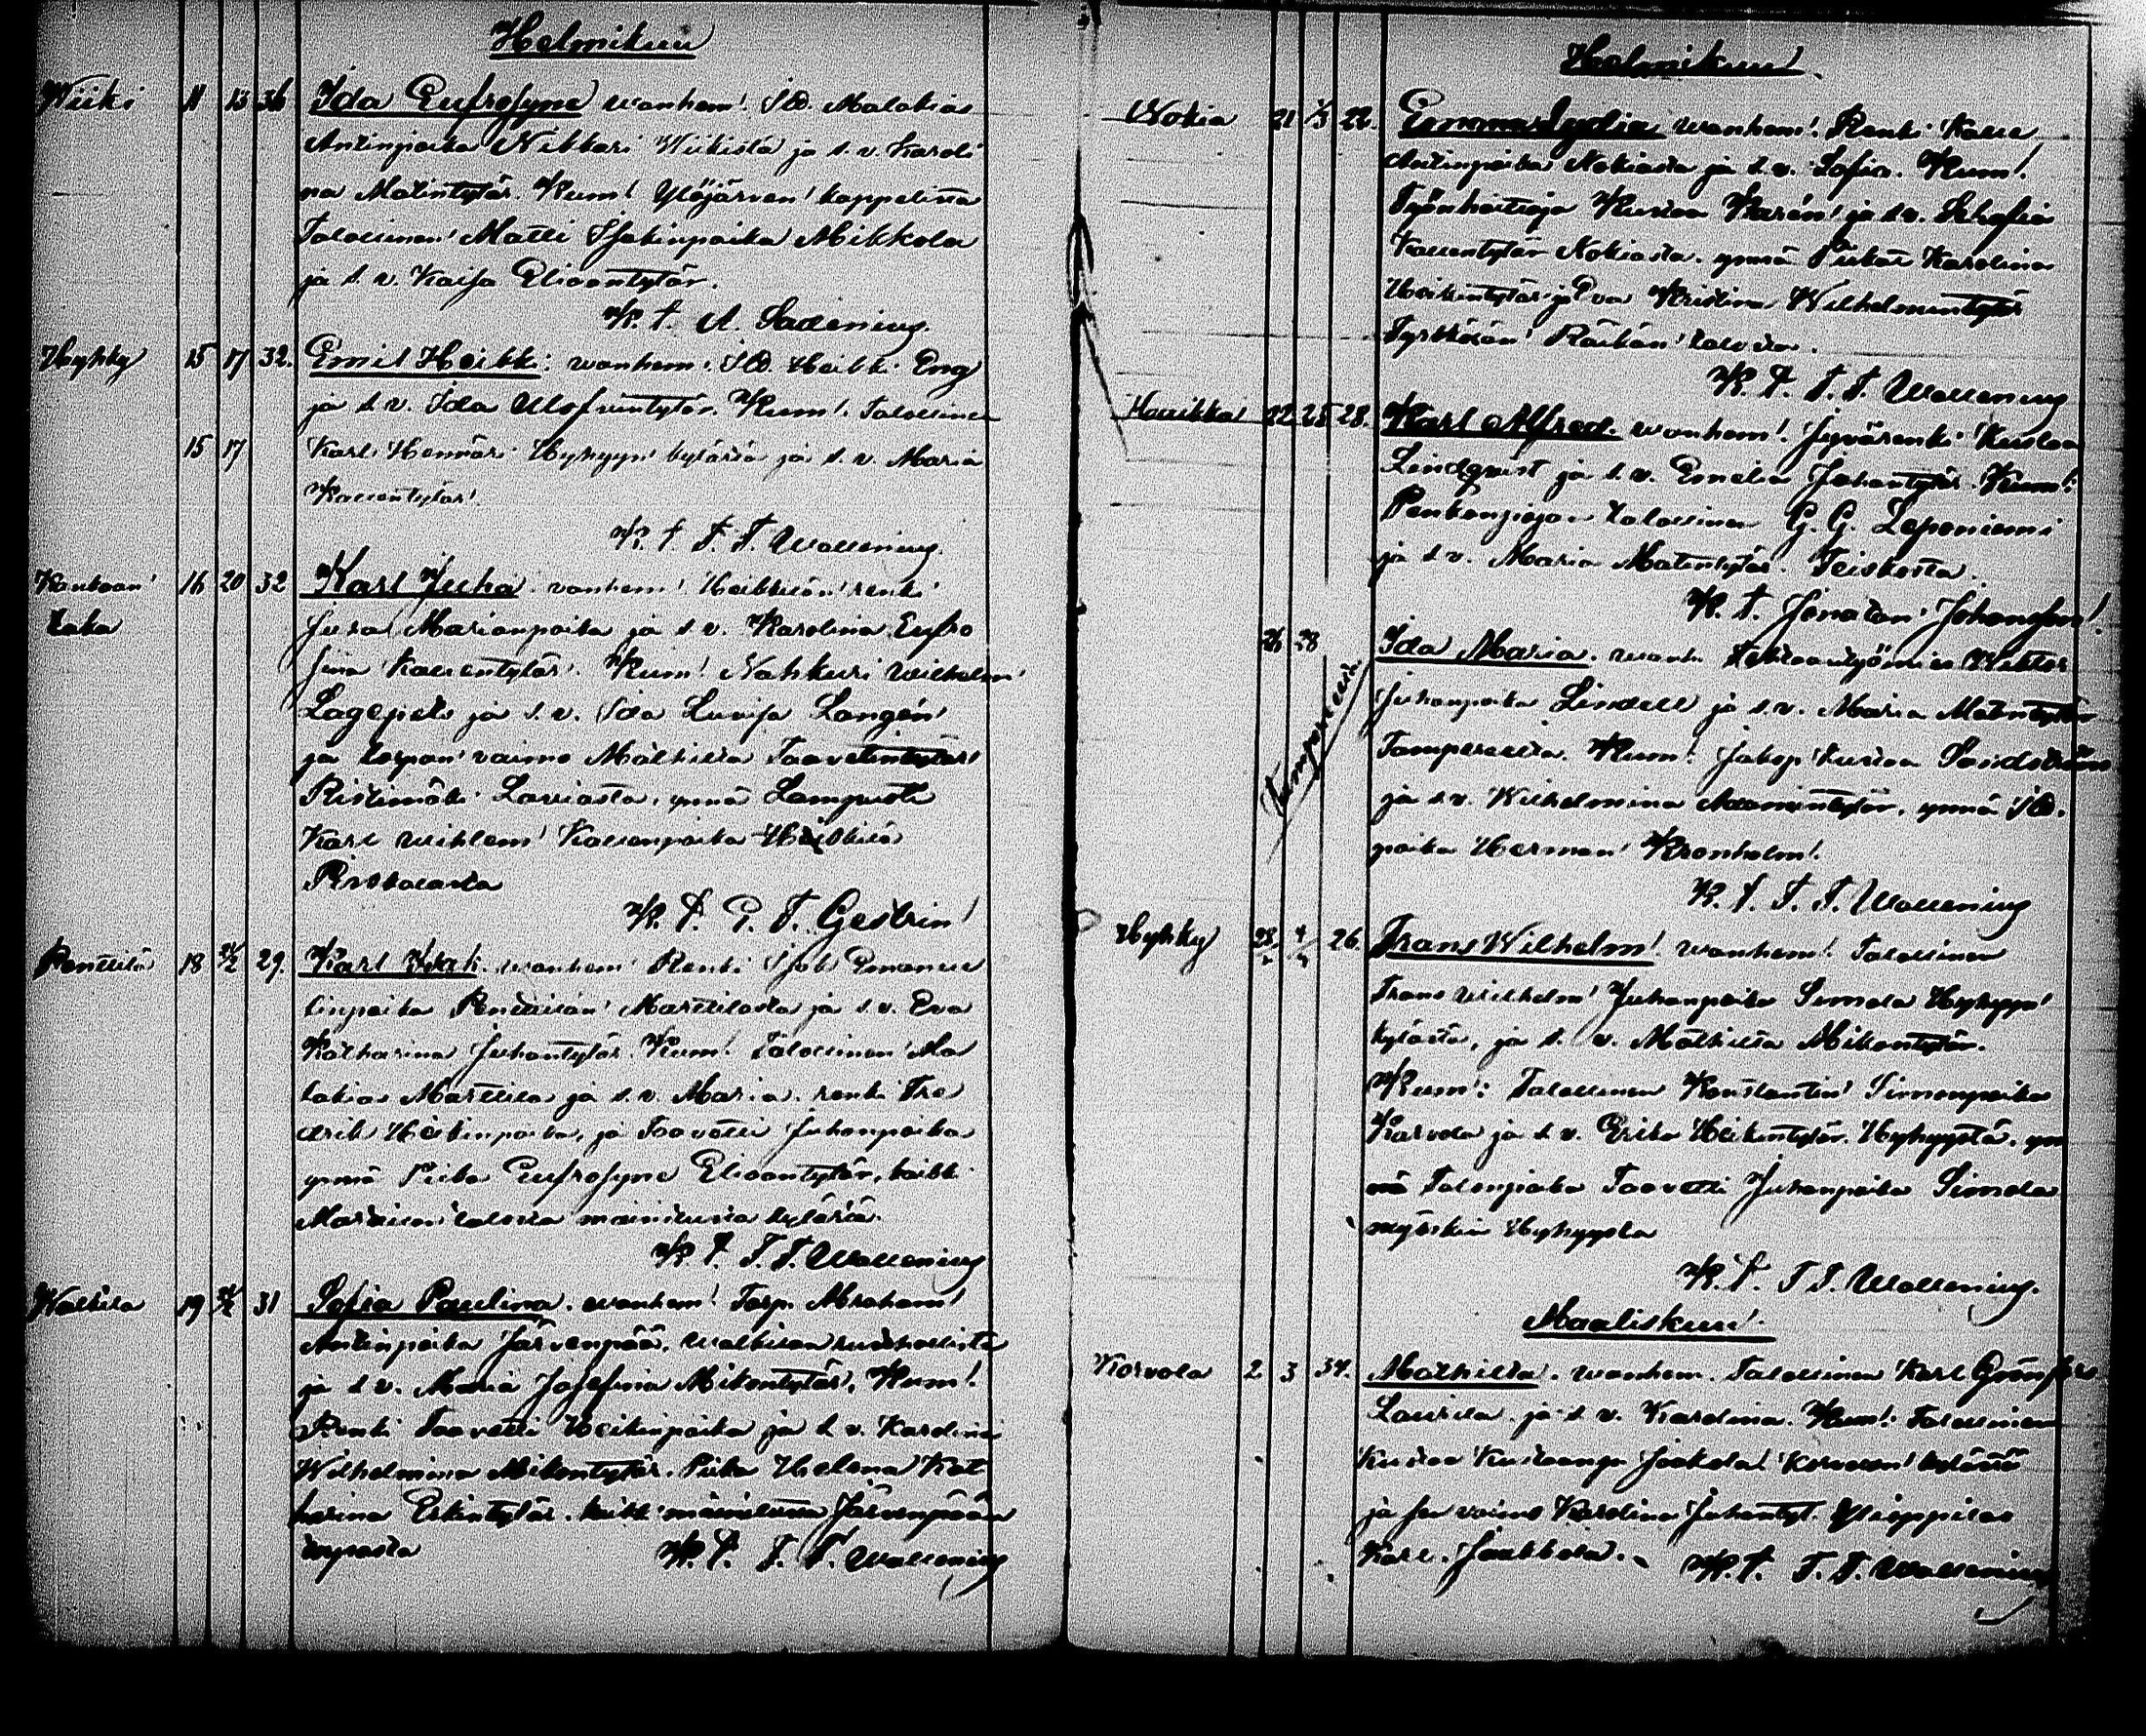 Helmikuu
Wiiki 11 13 36 Ida Eufrosyne wanhem. Itll. Malakias
Antinpoika Nikkari Wiikistä ja s. v. Karoli
na Matintytär. Kum. Ylöjärven kappelista
Talollinen Matti Isakinpoika Mikkola
ja s. v. Kaisa Eliaantytär.
K. t. A. Sadenius.
Hyhky 15 17 32. Emil Heikki: wanhem. Itll. Heikki Eng
ja s. v. Ida Ulofvintytär. Kum. Talollinen
15 17 Karl Hennäri Hyhyyn kylästä ja s. v. Maria
Kallentytär.
K. t. F. F. Wallenius.
16 20 32 Karl Juha. vanhem. Heikkilän renki
Juha Marianpoika ja s. v. Karolina Eufro
siina Kallentytär. Kum. Nahkuri Wilhelm
ja s. v. Ida Luvisa Langén
ja torpan vaimo Mathilda Taavetintytär
Ristimäki Laviasta, ynnä
Karl Wihlem Kallenpoika Heikkilä
Pirkkalasta
K. t. G. F. Gestrin
Penttilä 18 24/2 29. Karl wanhem. Renki Job Emanue
linpoika Penttilän Marttilasta ja s. v. Eva
Katharina Juhantytär. Kum. Talollinen Ma
lakias Marttila ja s. v. Maria. renki Fre
drik Heikinpoika, ja Taavetti Juhanpoika
ynnä Piika Eufrosyne Eliaantytär, kaikki
Marttilan talosta mainitusta kylästä.
K. t. F. F. Wallenius
Walkila 19 24/2 31 Sofia Paulina. wanhem. Torp. Abraham
Antinpoika Järvenpää, Walkilan
ja s. v. Maria Josefina Mikontytär, Kum.
Renki Taavetti Heikinpoika ja s. v. Karolina
Wilhelmina Mikontytär. Piika Helena Kat
harina Erkintytär. kaikki mainitusta Järvenpään
torpasta K. t. F. F. Wallenius
Helmikuu.
Nokia 21 1/3 22. Emma Lydia wanhem. Renki Kalle
Antinpoika Nokiasta ja s. v. Sofia. Kum.
Työnhoitaja Kustaa Karén ja s. v. Sofia
Kallentytär Nokiasta. ynnä Piikat Karolina
Heikintytär ja Eva Kristina Wilhelmintytär
Tyrkkölän Räikän talosta.
K. t. F. F. Wallenius
Haaikka 22 25 28. Karl Alfred. wanhem. Jyvärenki Kustaa
Lindqvist ja s. v. Emelia Juhantytär. Kum:
talollinen G. G. Leponiemi
ja s. v. Maria Matintytär. Teiskosta.
K. t. Jonatan Johansson.
Tampereelle 26 28 Ida Maria. wanh. Wiktor
Juhanpoika Lindell ja s. v. Maria Matintytär
Tampereelta. Kum. Kustaa Sandström
ja s. v. Wilhelmina Aadamintytär, ynnä Itll.
poika Herman Kronholm.
K. t. F. F. Wallenius
Hyhky 28/2 4/3 26. Frans Wilhelm. wanhem. Talollinen
Frans Wilhelm Juhanpoika Simola Hyhyyn
kylästä, ja s. v. Mathilda Mikontytär.
Kum: Talollinen Konstantin Simonpoika
Karvola ja s. v. Erika Heikintytär. Hyhyystä. yn
nä Talonpoika Taavetti Juhanpoika Simola
myöskin Hyhyystä
K. t. F. F. Wallenius.
Maaliskuu.
Korvola 2 3 34. Mathilda. wanhem. Talollinen Karl Grönfors
Laurila ja s. v. Karolina. Kum: Talollinen
Kustaa Kustaanp. Jaakola kylästä
ja sen vaimo Karolina Juhantyt. Ylioppilas
Karl. Jaakkola. K. t. F. F. Wallenius